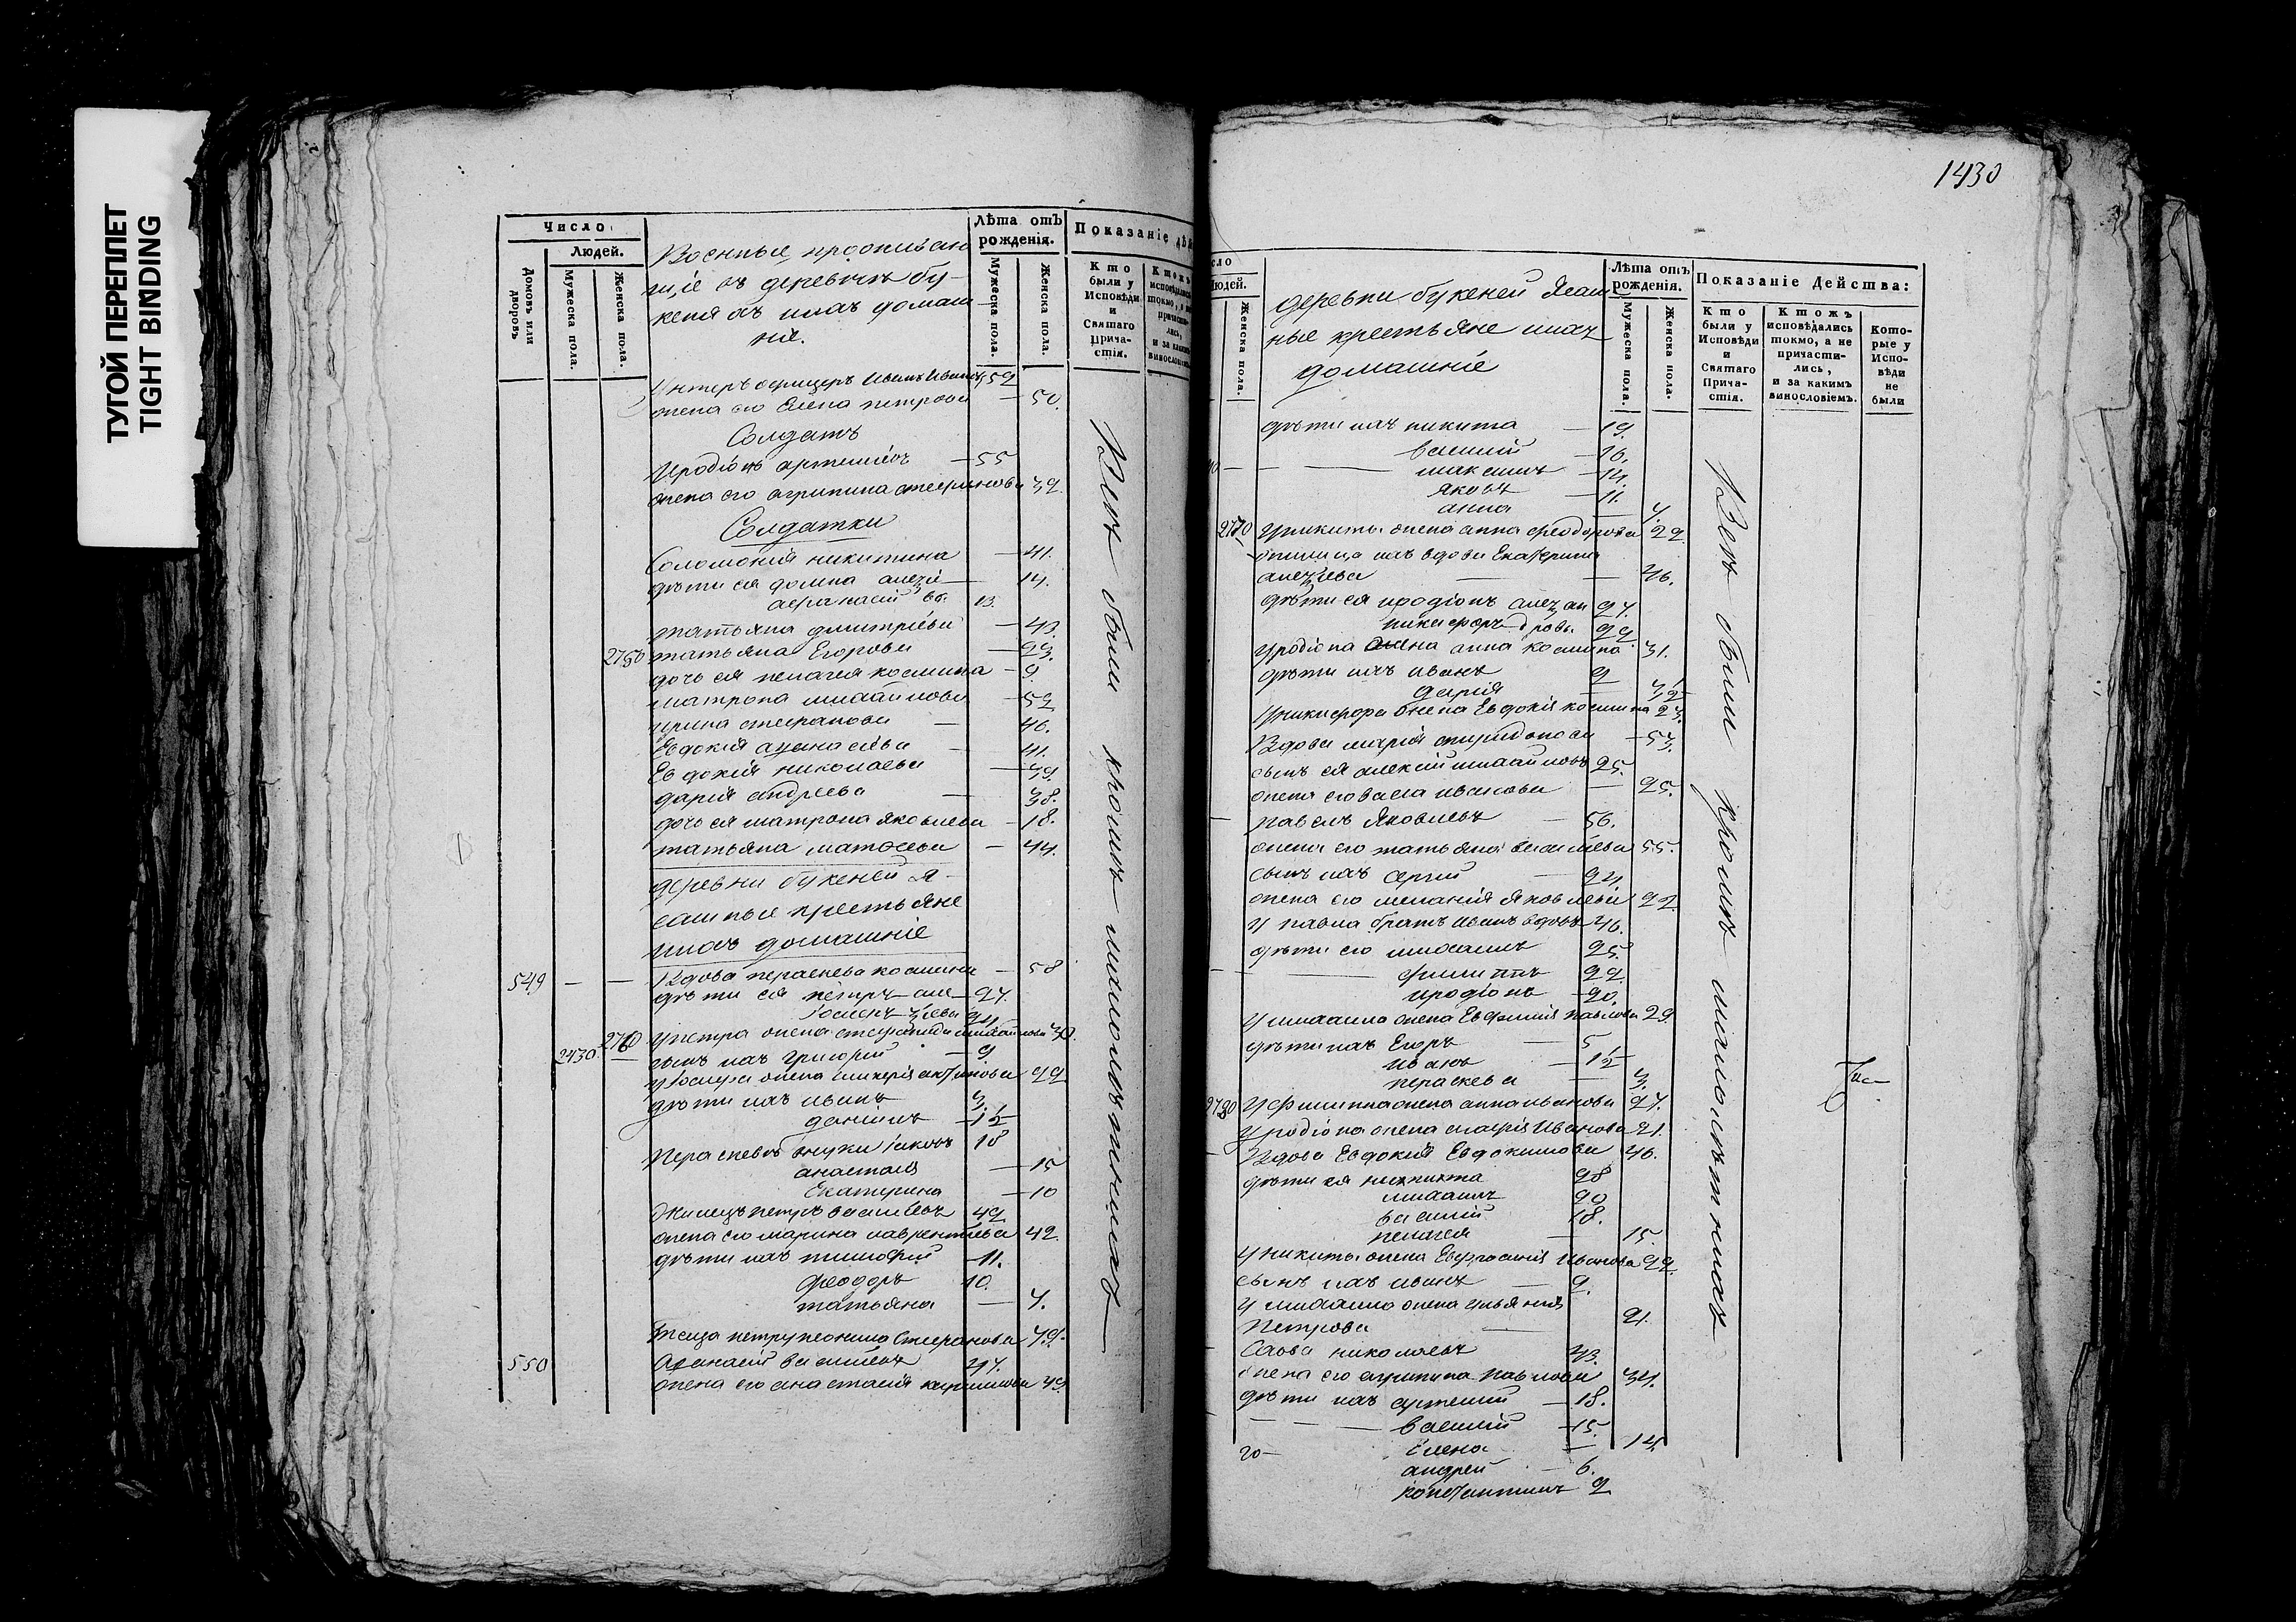 ТУГОЙ ПЕРЕПЛЕТ
TIGHT BINDING
Число
Людей.
Домовъ или дворовъ
Мужеска пола.
Женска пола.
Военные проживаю
щіе въ деревнѣ бу-
кеня съ ихъ домаш
ніе.
Лѣта отъ
рожденія.
Мужеска пола.
Женска пола.
Показаніе дѣй
Кто
были у
Исповѣди
и
Святаго
Прича-
стія.
Унтеръ офицеръ Иванъ Ивановъ 59
жена его Елена петрова — 50.
Солдатъ
Иродіонъ артеміевъ — 55
жена его агрипина стефанова 39.
Солдатки
Соломонія никитина — 41.
дѣти ея домна алезіи — 14.
афанасій 13.
татьяна дмитріева — 43.
2750 татьяна Егорова — 23.
дочь ея пелагея космина — 9.
матрона михайлова — 52
ирина стефанова — 40.
Евдокія афанасіева — 41.
Евдокія николаева — 39.
дарія андреева — 38.
дочь ея матрона яковлева — 18.
татьяна матвѣева — 44.
деревни букеней я-
сашные крестьяне
ихъ домашніе
549 — — Вдова параскева космина — 58
дѣти ея петръ але 27.
Іосифъ зіевы 24
2760 У петра жена стефанида михайлова 30.
2430 сынъ ихъ григорій — 9.
У Іосифа жена гликерія антипова 22
дѣти ихъ иванъ 3.
даніилъ — 1½
Параскевы внуки Іаковъ 18
анастасія — 15
Екатерина — 10
Жилецъ петръ васильевъ 49
жена его марина лаврентіева 42.
дѣти ихъ тимофей — 11.
феодоръ 10.
татьяна — 7.
Теща петру неонила Стефанова 79.
550 Афанасій васильевъ 47.
жена его анастасія кирилова 39
Всѣ были кромѣ малолѣтнихъ
1430
сло
Людей.
Женска пола.
деревни букеней Ясаш
ные крестьяне ихъ
домашніе
Лѣта отъ
рожденія.
Мужеска пола.
Женска пола.
Показаніе Действа:
Кто
были у
Исповѣди
и
Святаго
Прича-
стія.
Ктожъ
исповѣдались
токмо, а не
причасти-
лись,
и за какимъ
винословіемъ.
Кото-
рые у
Испо-
вѣди
не
были
дѣти ихъ никита — 19.
василій — 16.
максимъ — 14.
яковъ — 11.
анна — 7.
2770 У никиты жена анна феодорова 22.
жилица ихъ вдова Екатерина
алезіева — 46.
дѣти ея иродіонъ алезан 27.
никифоръ дровы 22
У родіона жена анна космина 31.
дѣти ихъ иванъ 9
дарія — 3½
У никифора жена Евдокія космина 23.
Вдова марія спиридонова — 53.
сынъ ея алексій михайловъ 25.
жена его васса иванова — 25.
павелъ Яковлевъ — 56.
жена его татьяна васильева 55.
сынъ ихъ сергій — 24
жена его меланія яковлева 22
У павла братъ иванъ вдовъ 46.
дѣти его михаилъ 25.
филиппъ 22
иродіонъ — 20.
У михаила жена Евфимія павлова 29.
дѣти ихъ Егоръ — 5
иванъ — 1½
параскева — 3.
2780 У филиппа жена анна иванова 27.
У родіона жена марія Иванова 21.
Вдова Евдокія Евдокимова 46.
дѣти ея никита 28
михаилъ 20
василій 18.
пелагея — 15.
У никиты жена Евфросинія Иванова 22.
сынъ ихъ иванъ — 2.
У михаила жена ульянія
Петрова — 21.
Савва николаевъ 43.
жена его агрипина павлова 34.
дѣти ихъ артемій — 18.
василій — 15.
Елена — 14
андрей — 6.
константинъ 2
Всѣ были кромѣ малолѣтнихъ